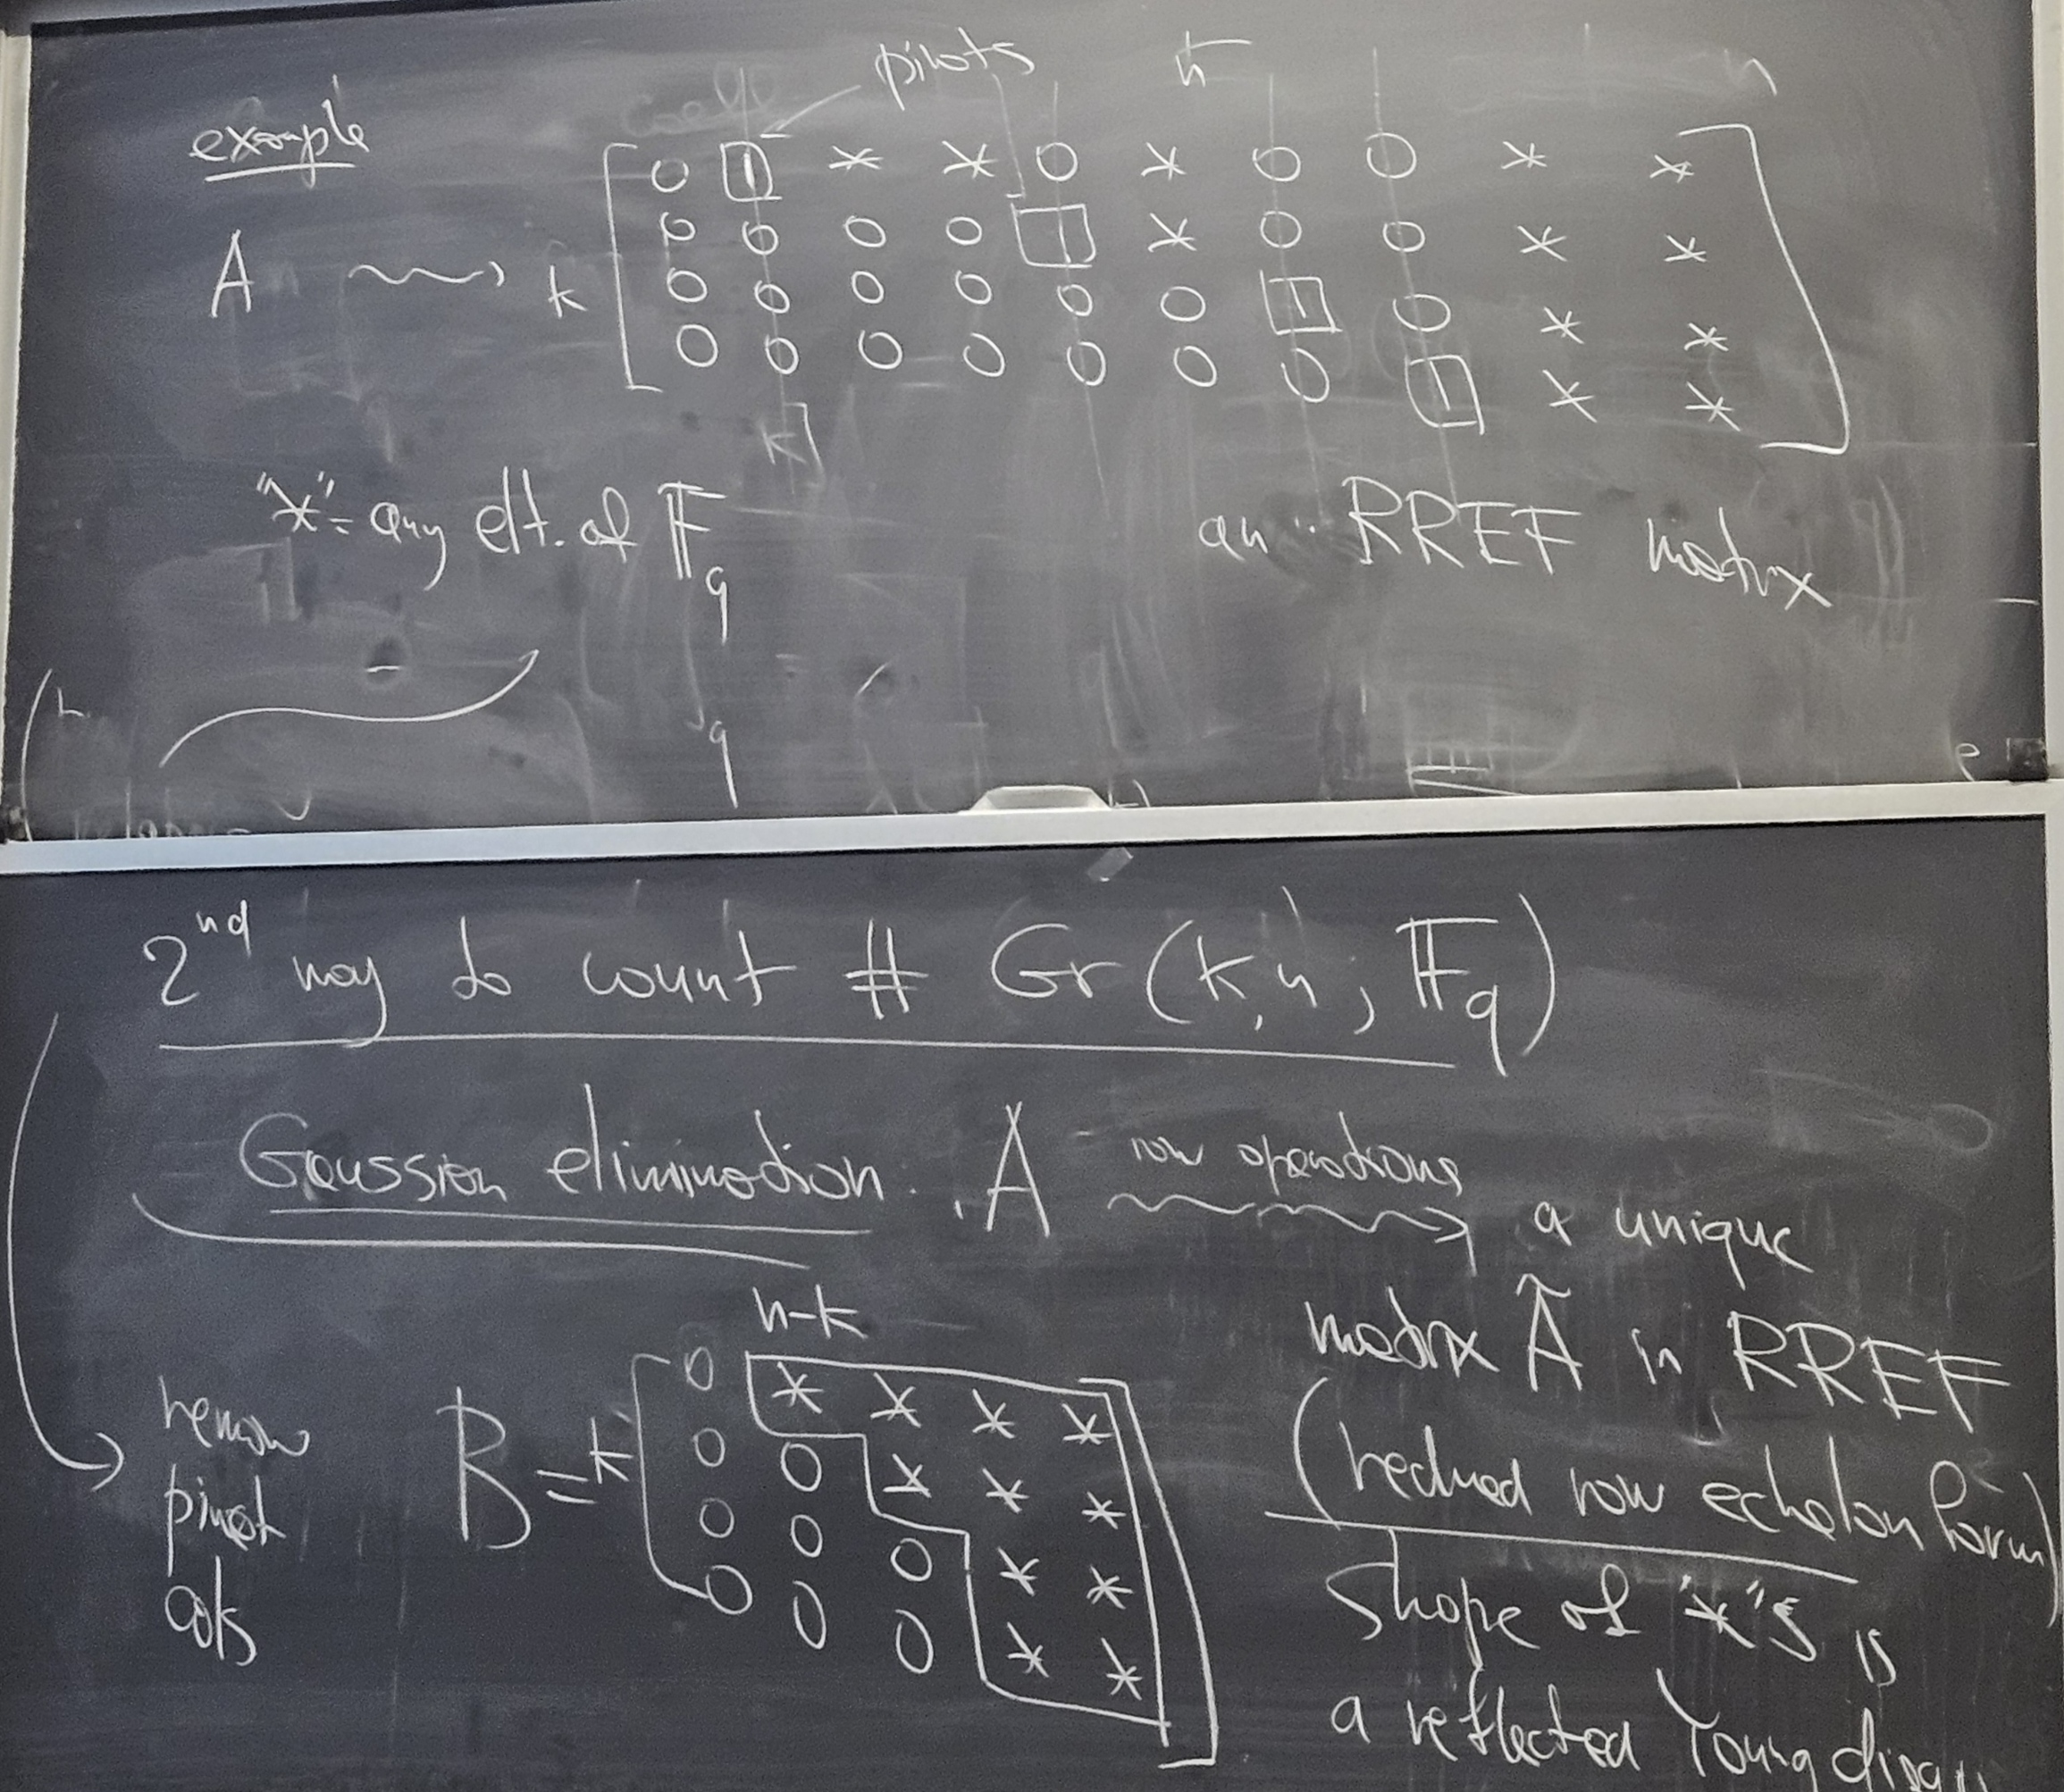 pivots n
example
A ⇝ k [ 0 1 * * 0 * 0 0 * *
0 0 0 0 1 * 0 0 * *
0 0 0 0 0 0 1 0 * *
0 0 0 0 0 0 0 1 * * ]
"*" = any elt. of 𝔽_q
an RREF matrix
2nd way to count # Gr(k,n; 𝔽_q)
Gaussian elimination. A row operations ⟿ a unique
matrix Ã in RREF
(reduced row echelon form)
n-k
remove pivot cols
B = k [ 0 * * * *
0 0 * * *
0 0 0 * *
0 0 0 * * ]
Shape of "*"s is
a reflected Young